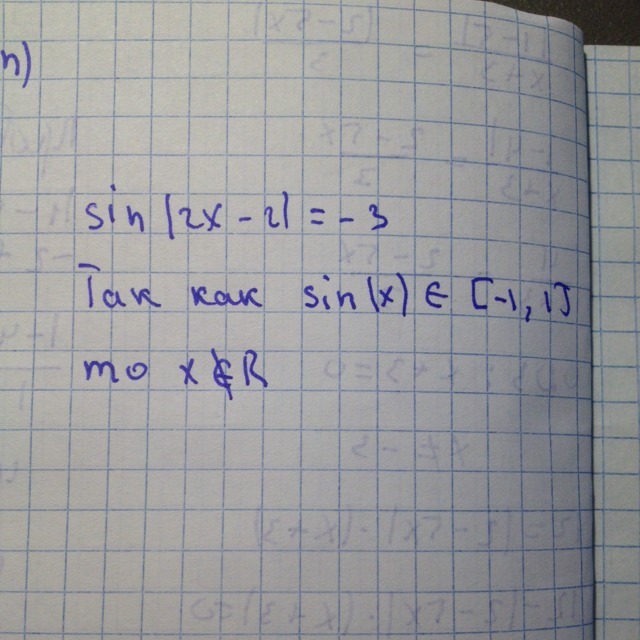 n)
sin |2x - 2| = - 3
Так как sin(x) ∈ [-1, 1]
то x ∉ R